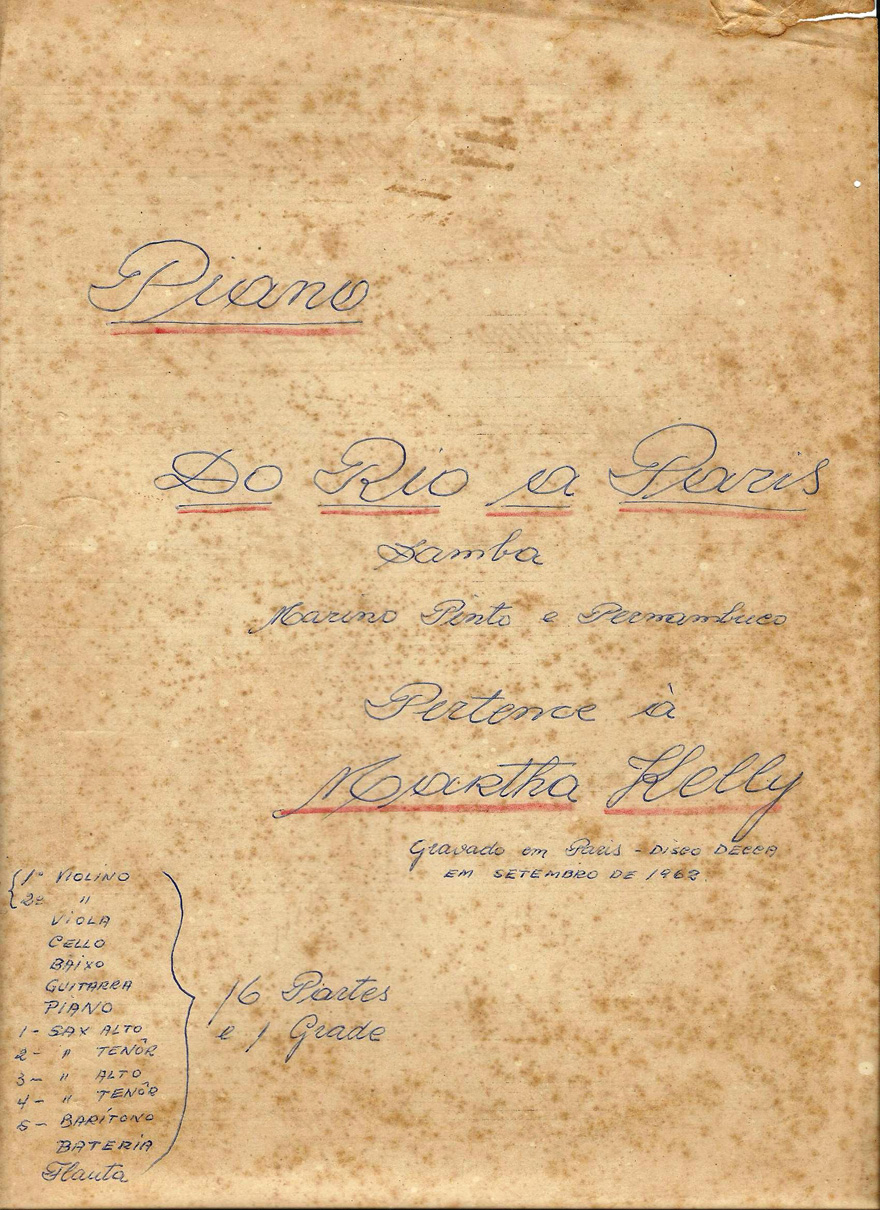 Piano
Do Rio a Paris
Samba
Marino Pinto e Pernambuco
Pertence à
Martha Kelly
Gravado em Paris - DISCO DECCA
EM SETEMBRO DE 1962
1º VIOLINO
2º "
VIOLA
CELLO
BAIXO
GUITARRA
PIANO
1- SAX ALTO
2- " TENÔR
3- " ALTO
4- " TENÔR
5- BARÍTONO
BATERIA
Flauta
16 Partes
e 1 Grade